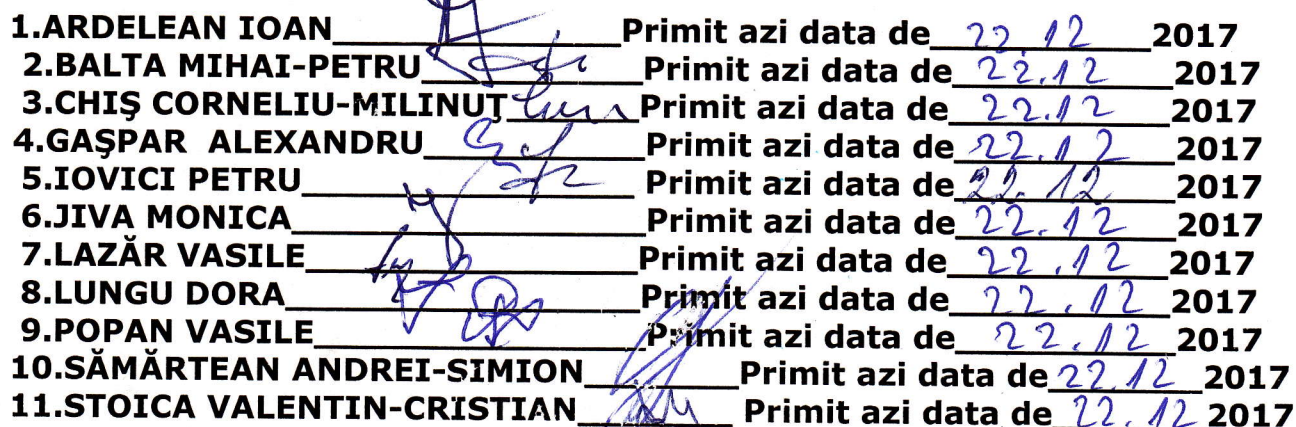 1.ARDELEAN IOAN Primit azi data de 22.12 2017
2.BALTA MIHAI-PETRU Primit azi data de 22.12 2017
3.CHIŞ CORNELIU-MILINUŢ Primit azi data de 22.12 2017
4.GAŞPAR ALEXANDRU Primit azi data de 22.12 2017
5.IOVICI PETRU Primit azi data de 22.12 2017
6.JIVA MONICA Primit azi data de 22.12 2017
7.LAZĂR VASILE Primit azi data de 22.12 2017
8.LUNGU DORA Primit azi data de 22.12 2017
9.POPAN VASILE Primit azi data de 22.12 2017
10.SĂMĂRTEAN ANDREI-SIMION Primit azi data de 22.12 2017
11.STOICA VALENTIN-CRISTIAN Primit azi data de 22.12 2017